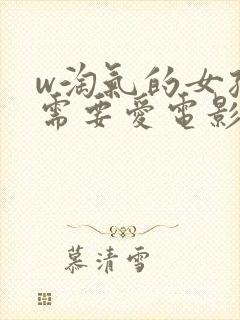 w淘氣的女
需要愛電影
慕清雪